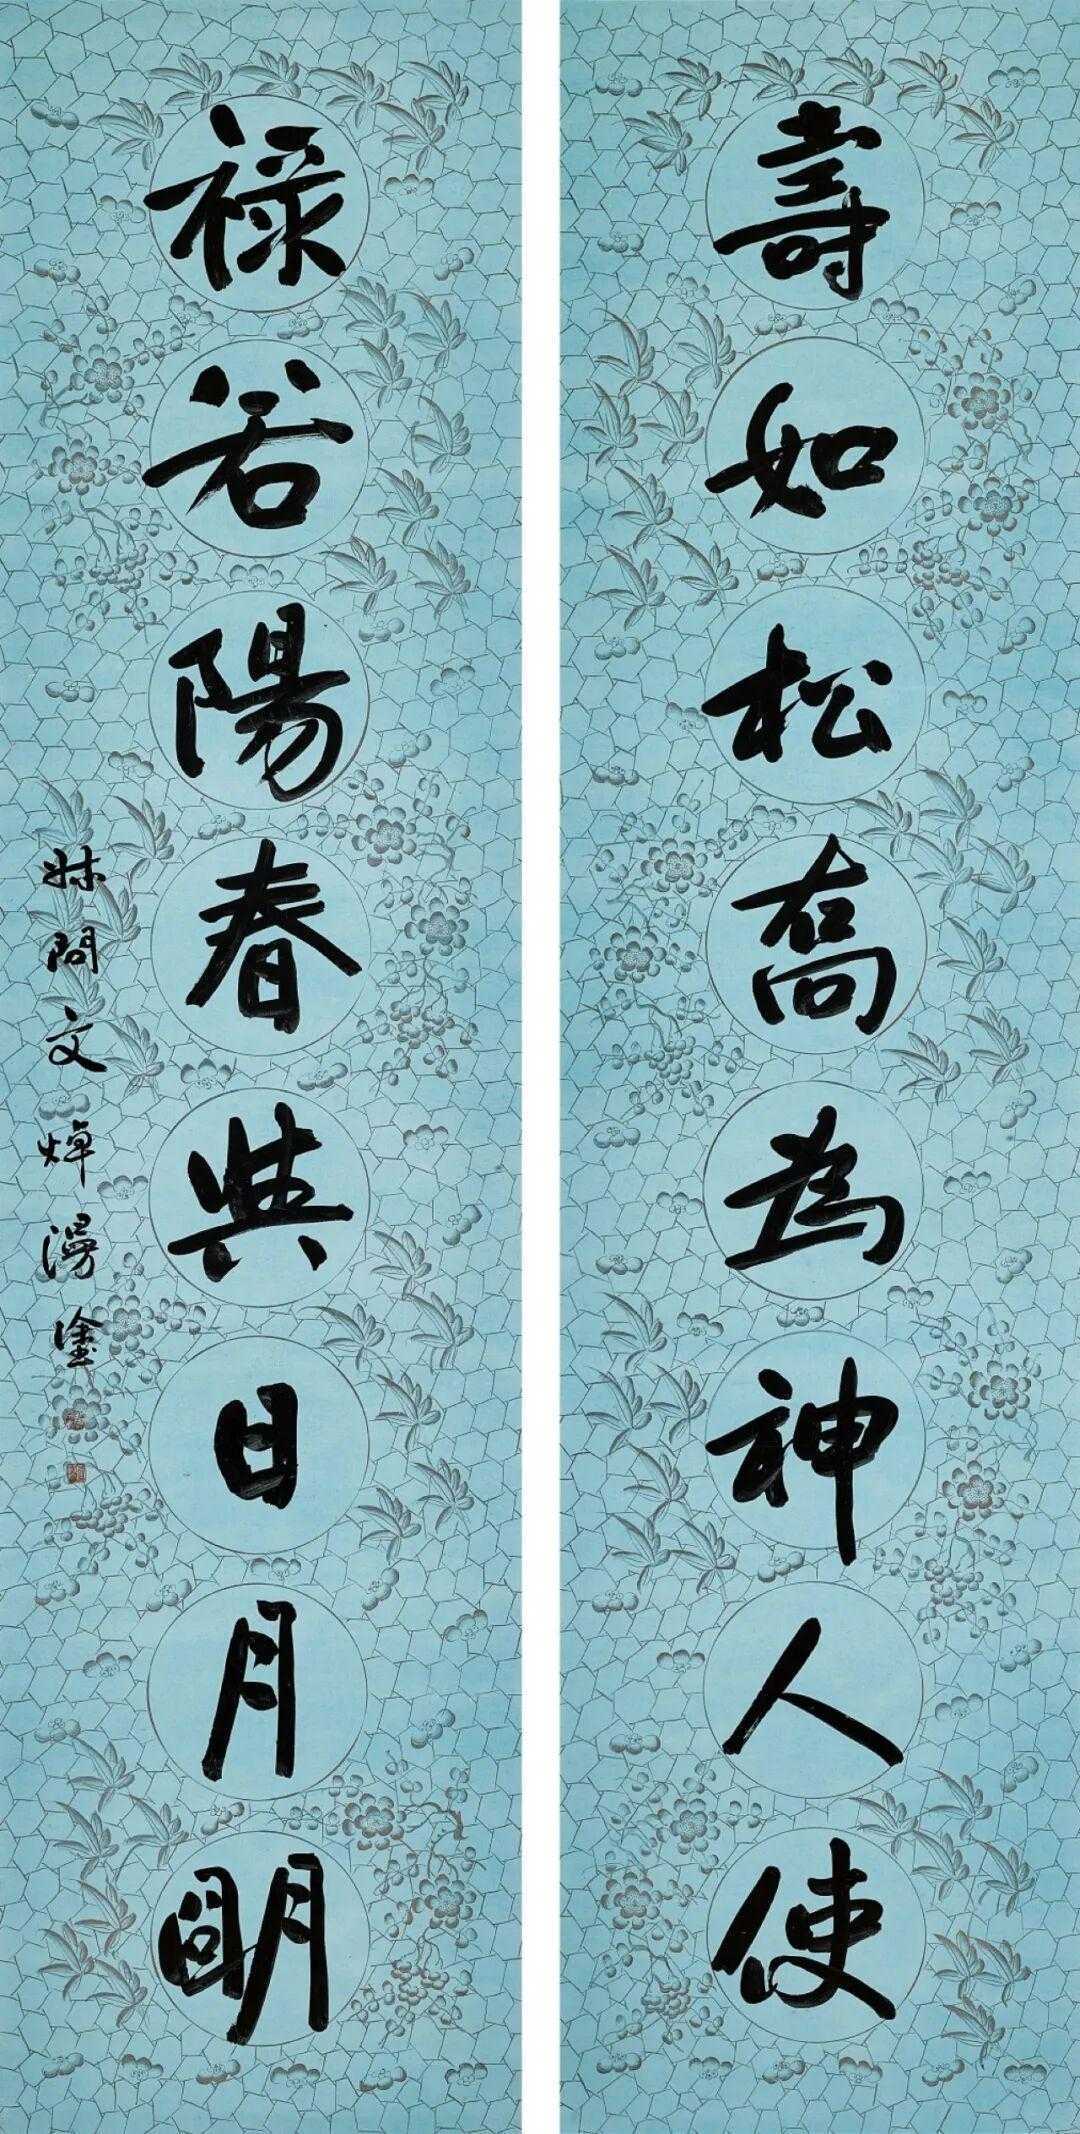 壽如松喬為神人使
祿若陽春與日月明
叔問文焯漫塗